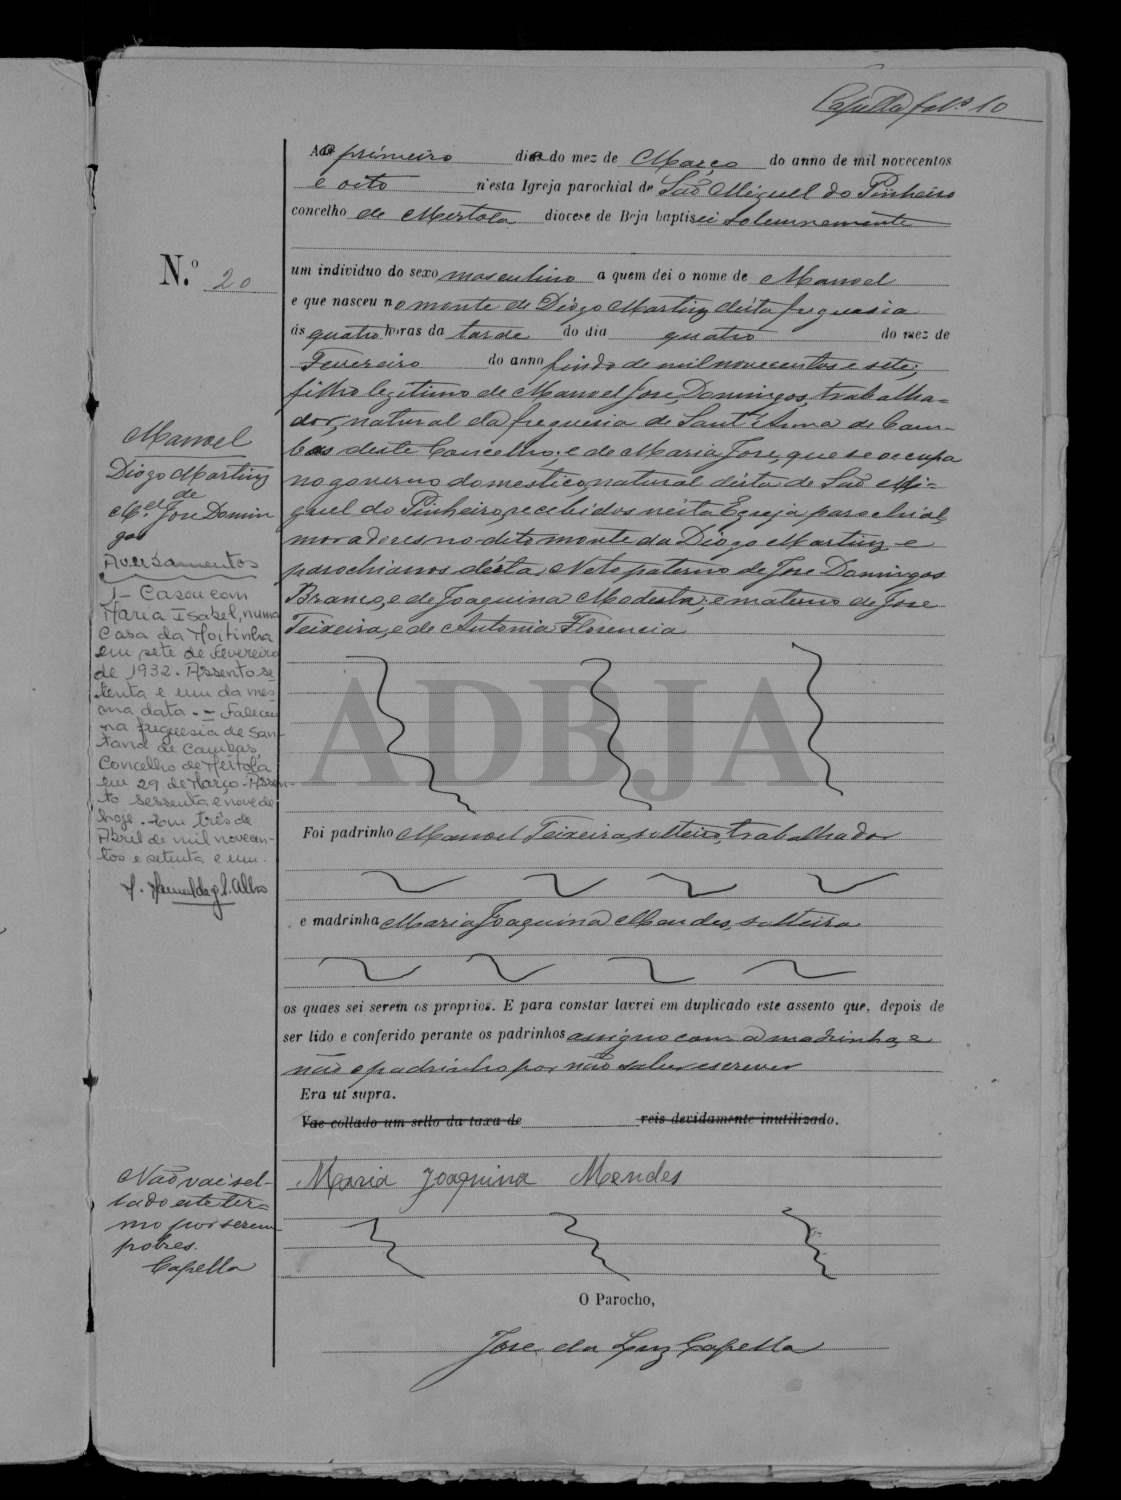 Capella fol.º 10
Ao primeiro dia do mez de Março do anno de mil novecentos
e oito n'esta Igreja parochial de São Miguel do Pinheiro
concelho de Mertola diocese de Beja baptisei solemnemente
N.º 20
um individuo do sexo masculino a quem dei o nome de Manoel
e que nasceu no monte de Diogo Martins d'esta freguesia
ás quatro horas da tarde do dia quatro do mez de
Fevereiro do anno findo de mil novecentos e sete,
filho legitimo de Manoel José Domingos, trabalha=
dor, natural da freguesia de Sant'Anna de Cam-
bas deste Concelho; e de Maria José, que se occupa
no governo domestico, natural d'esta de São Mi=
guel do Pinheiro, recebidos n'esta Egreja parochial,
moradores no dito monte da Diogo Martins e
parochianos d'esta, Neto paterno de José Domingos
Branco, e de Joaquina Modesta; e materno de José
Teixeira, e de Antonia Florencia
Manoel
Diogo Martins
de
M.el José Domin
gos
Averbamentos
1- Casou com
Maria Isabel, numa
Casa da Moitinha
em sete de fevereiro
de 1932. Assento se
tenta e um da mes
ma data. - Faleceu
na freguesia de San-
tana de Cambas,
Concelho de Mértola
em 29 de Março - Assen-
to sessenta e nove de
hoje. Em três de
Abril de mil novecen-
tos e setenta e um.
ADBJA
Foi padrinho Manoel Teixeira, solteiro, trabalhador
e madrinha Maria Joaquina Mendes, solteira
os quaes sei serem os proprios. E para constar lavrei em duplicado este assento que, depois de
ser lido e conferido perante os padrinhos assigno com a madrinha, e
não o padrinho por não saber escrever
Era ut supra.
Vae collado um sello da taxa de reis devidamente inutilizado.
Maria Joaquina Mendes
Não vai sel-
lado este ter=
mo por serem
pobres.
Capella
O Parocho,
José da Luz Capella